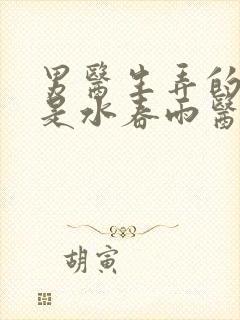 男醫生弄的
是水春雨醫
胡寅